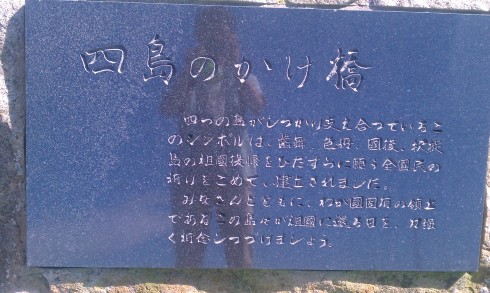 四島のかけ橋
四つの島がしっかり支え合っているこ
のシンボルは、歯舞、色丹、國後、択捉
島の祖國復帰をひたすらに願う全國民の
祈りをこめて、建立されました。
みなさんとともに、わが國固有の領土
であるこの島々が祖國に還る日を、力強
く祈念しつづけましょう。